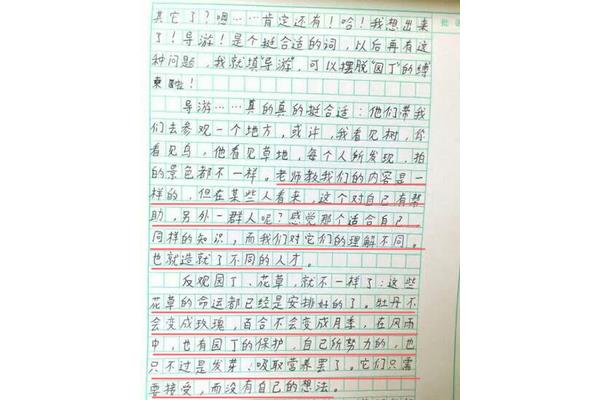 其它了？嗯……肯定还有！哈！我想出来
了！导游！是个挺合适的词，以后再有这
种问题，我就填"导游"，可以摆脱"园丁"的缚
束啦！
导游……真的真的挺合适：他们带我
们去参观一个地方，或许，我看见树，你
看见鸟，他看见草地，每个人所发现，拍
的景色都不一样。老师教我们的内容是一
样的，但在某些人看来，这个对自己有帮
助，另外一群人呢？感觉那个适合自己，
同样的知识，而我们对它们的理解不同，
也就造就了不同的人才。
反观园丁、花草，就不一样了：这些
花草的命运都已经是安排好的了。牡丹不
会变成玫瑰，百合不会变成月季，在风雨
中，也有园丁的保护，自己所努力的，也
只不过是发芽、吸取营养罢了。它们只需
要接受，而没有自己的想法。